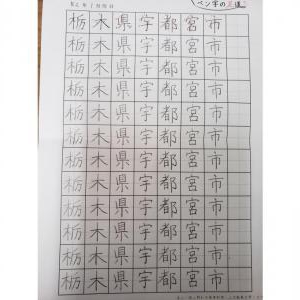 ペン字の王道
栃木県宇都宮市
栃木県宇都宮市
栃木県宇都宮市
栃木県宇都宮市
栃木県宇都宮市
栃木県宇都宮市
栃木県宇都宮市
栃木県宇都宮市
栃木県宇都宮市
栃木県宇都宮市
栃木県宇都宮市
栃木県宇都宮市